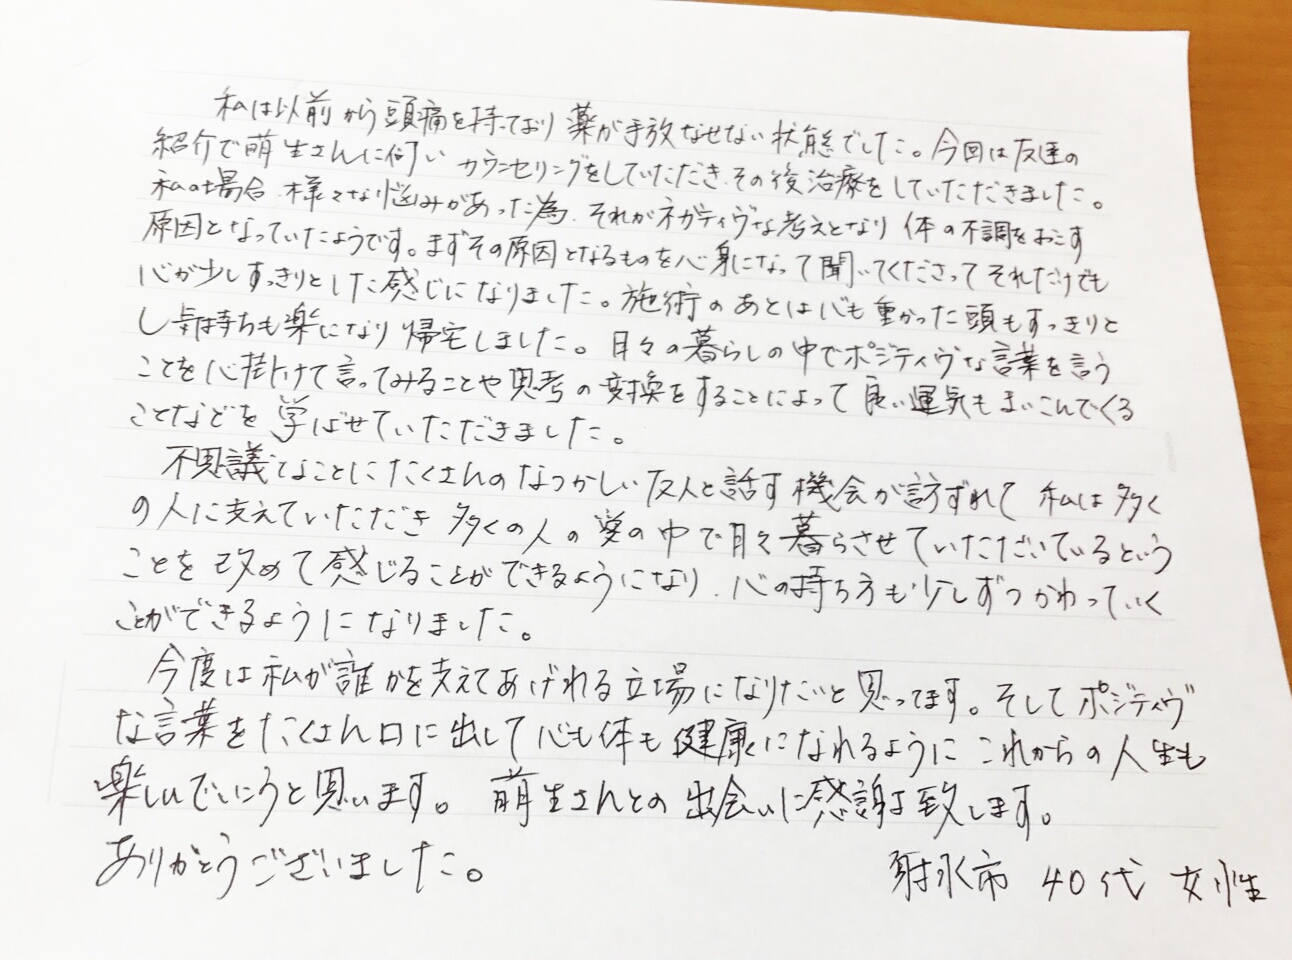 私は以前から頭痛を持っており薬が手放なせない状態でした。今回は友達の
紹介で萌生さんに伺い カウンセリングをしていただき、その後治療をしていただきました。
私の場合、様々な悩みがあった為、それがネガティヴな考えとなり 体の不調をおこす
原因となっていたようです。まずその原因となるものを心身になって聞いてくださって それだけでも
心が少しすっきりとした感じになりました。施術のあとは心も重かった頭もすっきりと
し気持ちも楽になり 帰宅しました。日々の暮らしの中でポジティヴな言葉を言う
ことを心掛けて言ってみることや思考の変換をすることによって良い運気もまいこんでくる
ことなどを学ばせていただきました。
不思議なことにたくさんのなつかしい友人と話す機会が訪ずれて 私は多く
の人に支えていただき 多くの人の愛の中で日々暮らさせていただいているという
ことを改めて感じることができるようになり、心の持ち方も少しずつかわっていく
ことができるようになりました。
今度は私が誰かを支えてあげれる立場になりたいと思ってます。そしてポジティヴ
な言葉をたくさん口に出して心も体も健康になれるように これからの人生も
楽しんでいこうと思います。 萌生さんとの出会いに感謝致します。
ありがとうございました。
射水市 40代 女性